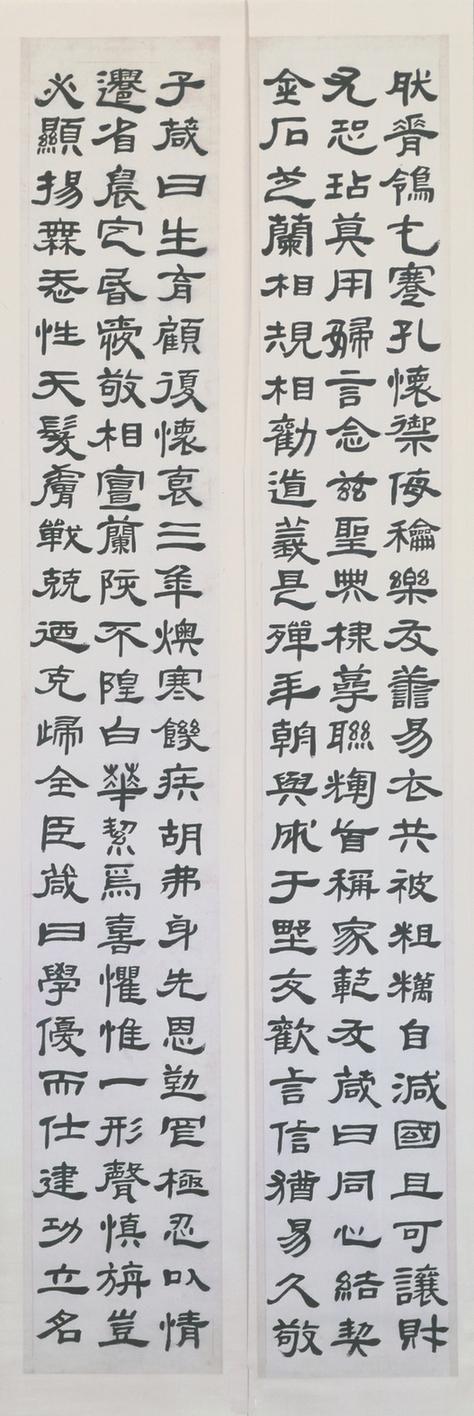 脊鴒乇蹇孔懷禦侮龢樂友譱易衣共被粗糲自減國且可讓財
恐玷莫用婦言念兹聖典棣萼聯輝首稱家範友葴曰同心結契
金石芝蘭相規相勸道義是殫年朝與成于野友歡言信猶易久敬
子葴曰生育顧復懷哀三年燠寒饑疾胡弗身先恩勤罔極忍以情
遷省晨定昏愛敬相宣蘭陔不隍白華絜焉喜懼惟一形聲慎旃豈
必顯揚無忝性天髮膚戰兢迺克歸全臣葴曰學優而仕建功立名